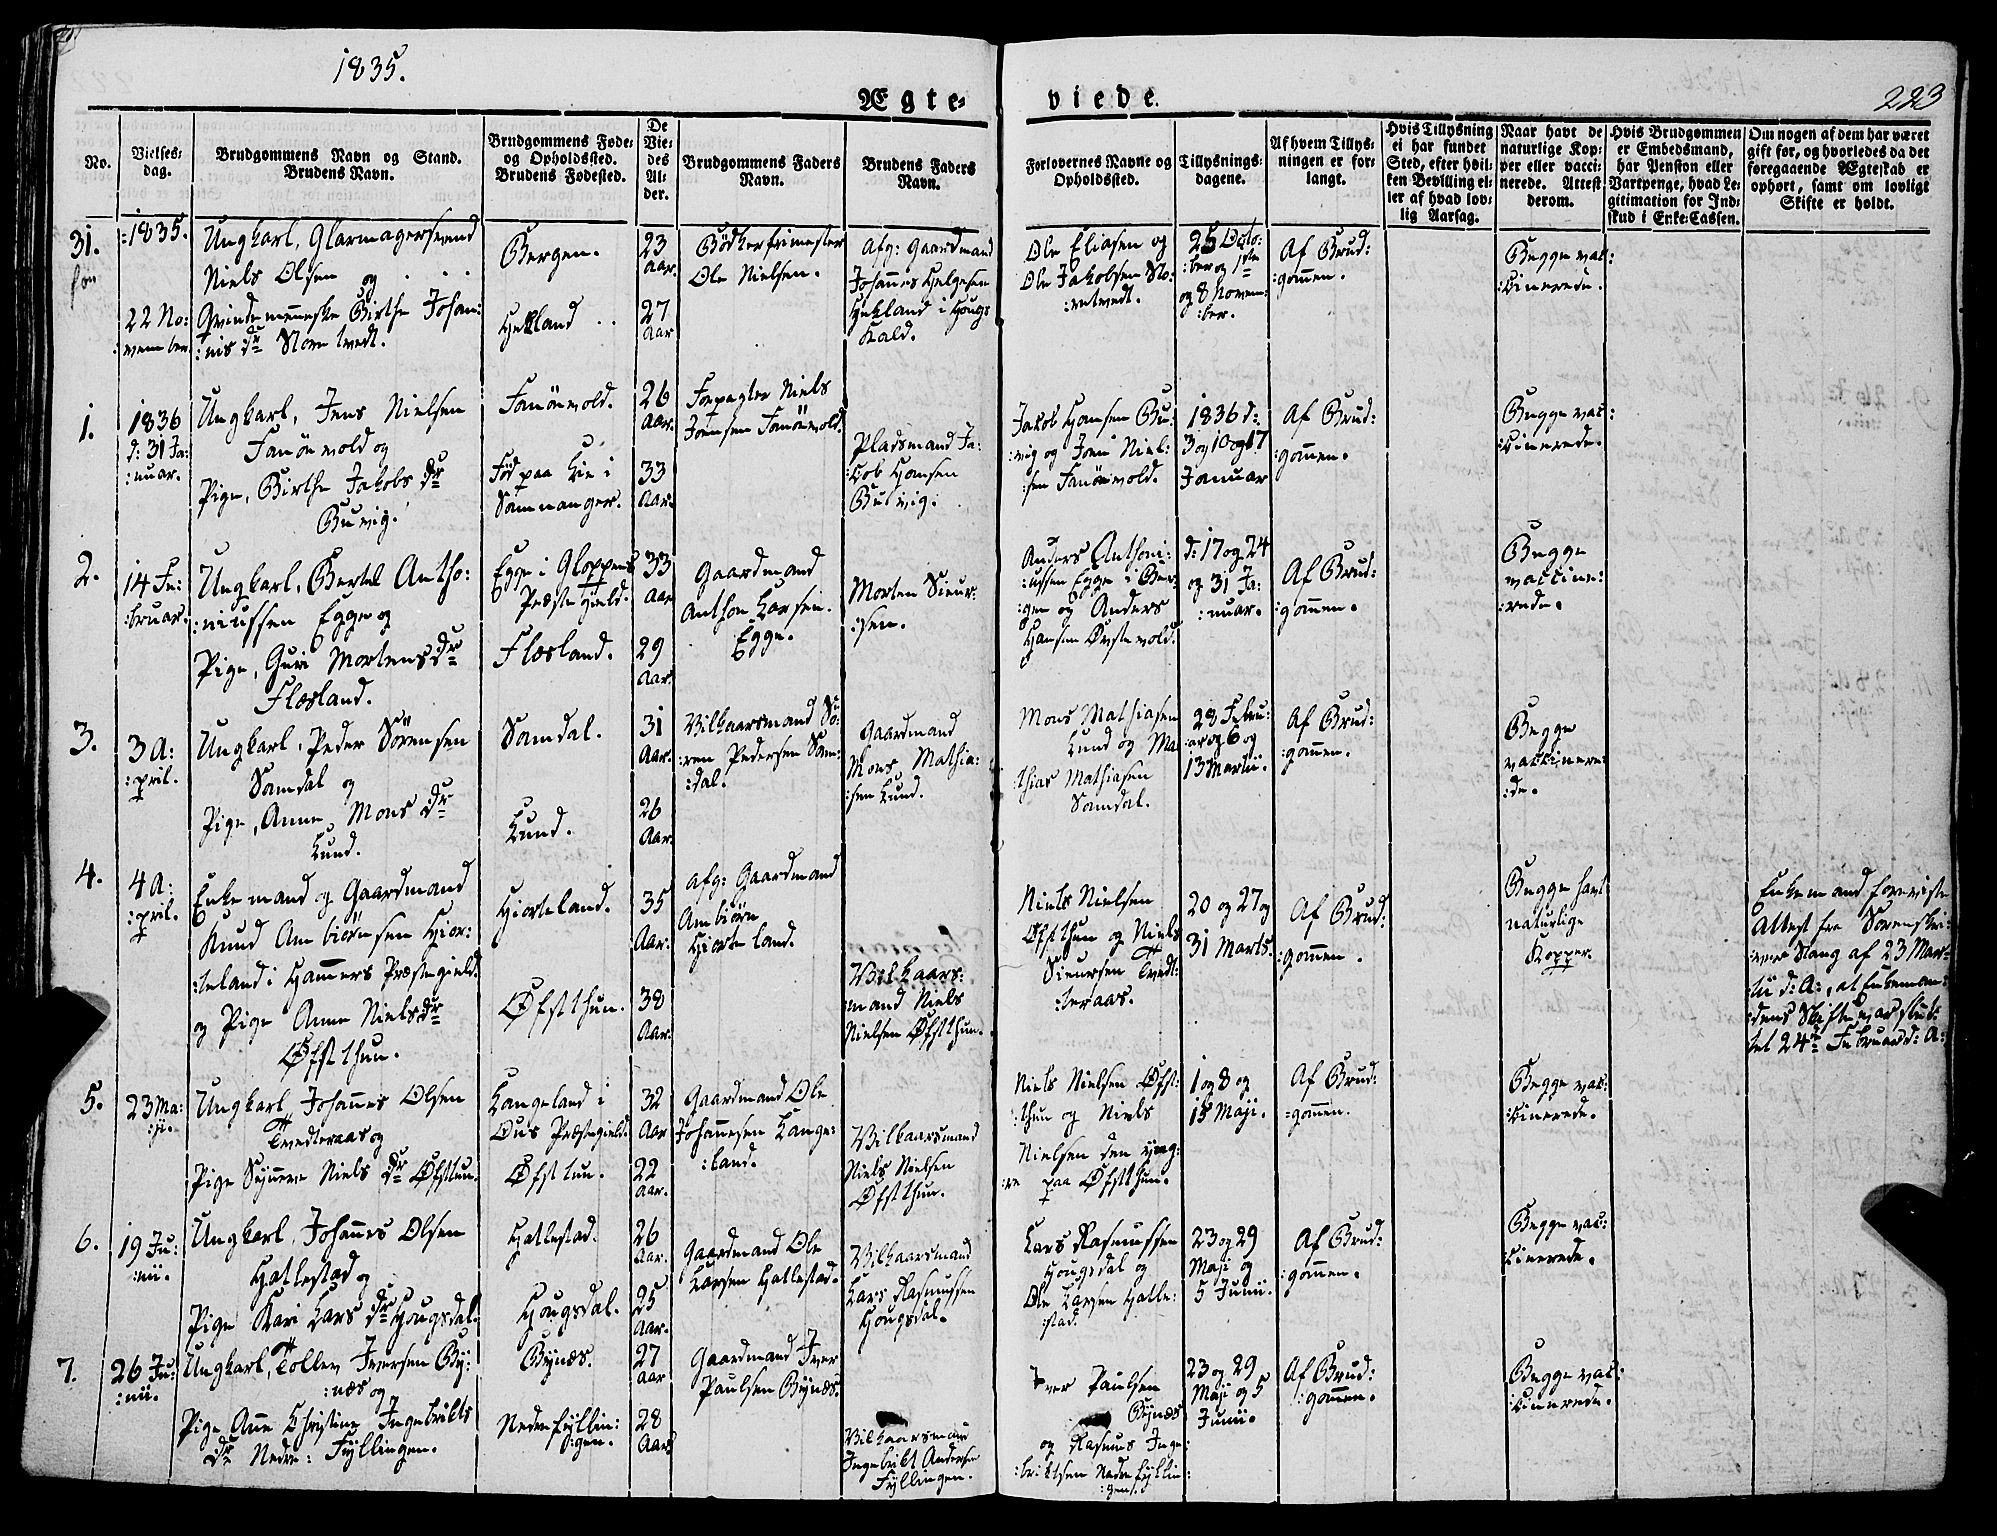 1835.
Ægte-
viede.
223
No.
Vielses-
dag.
Brudgommens Navn og Stand.
Brudens Navn.
Brudgommens Føde-
og Opholdssted.
Brudens Fødested.
De
Vie-
des
Al-
der.
Brudgommens Faders
Navn.
Brudens Faders
Navn.
Forlovernes Navne og
Opholdssted.
Tillysnings-
dagene.
Af hvem Tillys-
ningen er for-
langt.
Hvis Tillysning
ei har fundet
Sted, efter hvil-
ken Bevilling el-
ler af hvad lov-
lig Aarsag.
Naar havt de
naturlige Kop-
per eller vacci-
nerede. Attest
derom.
Hvis Brudgommen
er Embedsmand,
har Pension eller
Vartpenge, hvad Le-
gitimation for Ind-
skud i Enke-Cassen.
Om nogen af dem har været
gift før, og hvorledes da det
foregaaende Ægteskab er
ophørt, samt om lovligt
Skifte er holdt.
31.
1835.
22 No:
:vember
Ungkarl, Glarmagersvend
Niels Olsen og
Qvindemenneske Birthe Johan:
:nis dr Storetvedt.
Bergen.
Hekland
23
Aar.
27
Aar
Bödkerfrimester
Ole Nielsen.
Afg: Gaardmand
Johannes Helgesen
Hekland i Hougs
Kald.
Ole Eliasen og
Ole Jakobsen Sto:
:retvedt.
25 Octo:
:ber og 1ste
og 8 Novem:
:ber.
Af Brud:
:gommen.
Begge vac:
:cinerede.
1.
1836
d: 31 Ja:
:nuar.
Ungkarl, Jens Nielsen
Fanönvold og
Pige, Birthe Jakobs dr
Buvig.
Fanönvold.
Föd paa Lie i
Samnanger.
26
Aar.
33
Aar.
Forpagter Niels
Jönnsen Fanönvold.
Pladsmand Ja:
:cob Hansen
Buvig.
Jakob Hansen Bu:
:vig og Joen Niel:
:sen Fanönvold.
1836 d:
3 og 10 og 17
Januar
Af Brud:
:gommen.
Begge vac:
:cinerede.
2.
14 Fe:
:bruar.
Ungkarl, Bertel Antho:
:niussen Egge og
Pige, Guri Mortens dr
Flesland.
Egge i Gloppens
Præstegield.
Flesland.
33
Aar
29
Aar.
Gaardmand
Anthon Larsen
Egge.
Morten Sieur:
:sen.
Anders Anthoni:
:ussen Egge i Ber:
:gen og Anders
Hansen Örstevold.
d: 17 og 24
og 31 Ja:
:nuar.
Af Brud:
:gommen.
Begge
vaccine:
:rede.
3.
3 A:
:pril.
Ungkarl, Peder Sörensen
Samdal og
Pige, Anne Mons dr
Lund.
Samdal.
Lund.
31
Aar.
26
Aar.
Vilkaarsmand Sö:
:ren Pedersen Sam:
:dal.
Gaardmand
Mons Mathia:
:sen Lund.
Mons Mathiasen
Lund og Ma
thias Mathiasen
Samdal.
28 Febru:
:ar og 6 og
13 Martii.
Af Brud:
:gommen.
Begge
vaccinere:
:de.
4.
4 A:
:pril.
Enkemand og Gaardmand
Knud Ambiörnsen Hior:
:teland i Hammers Præstegield.
og Pige Anne Niels dr
Øfsthun.
Hiorteland.
Øfsthun.
35
Aar.
38
Aar.
Afg: Gaardmand
Ambiörn
Hiorteland.
Vilkaars:
:mand Niels
Nielsen Øfsthun.
Niels Nielsen
Øfsthun og Niels
Sieursen Tvedt:
:teraas.
20 og 27 og
31 Marts.
Af Brud:
:gommen.
Begge havt
naturlige
Kopper.
Enkemand foreviste
Attest fra Sorenskri:
:ver Stang af 23 Mar:
:tii d: A:, at Enkeman:
:dens Skifte var slut:
tet 24de Februar d: A:
5.
23 Ma:
:ji.
Ungkarl, Johannes Olsen
Tvedteraas og
Pige Synneve Niels dr Øfsthun.
Langeland i
Ous Præstegield.
Øfsthun.
32
Aar
22
Aar.
Gaardmand Ole
Johannesen Lange:
:land.
Vilkaarsmand
Niels Nielsen
Øfsthun.
Niels Nielsen Øfst:
:thun og Niels
Nielsen den yng:
:re paa Øfsthun.
1 og 8 og
15 Maji.
Af Brud:
:gommen.
Begge vac:
:cinerede.
6.
19 Ju:
:nii.
Ungkarl, Johannes Olsen
Hatlestad og
Pige Kari Lars dr Hougsdal.
Hatlestad.
Hougsdal.
26
Aar.
25
Aar.
Gaardmand Ole
Larsen Hatlestad.
Vilkaarsmand
Lars Rasmussen
Hougsdal.
Lars Rasmussen
Hougsdal og
Ole Larsen Hatle:
:stad.
23 og 29
Maji og
5 Junii.
Af Brud:
:gommen.
Begge vac:
:cinerede.
7.
26 Ju:
:nii.
Ungkarl, Tollev Iversen By:
:næs og
Pige Anne Christine Ingebrikts
dr Nedre: Fyllingen.
Bynæs.
Nedrefyllin:
:gen.
27
Aar
28
Aar.
Gaardmand Iver
Paulsen Bynæs.
Vilkaarsmand
Ingebrikt Andersen
Fyllingen.
Iver Paulsen
Bynæs
og Rasmus Inge:
:briktsen Nedrefyllin
:gen.
23 og 29
Maji og 5
Junii.
Af Brud:
:gommen.
Begge vac:
:cinerede.